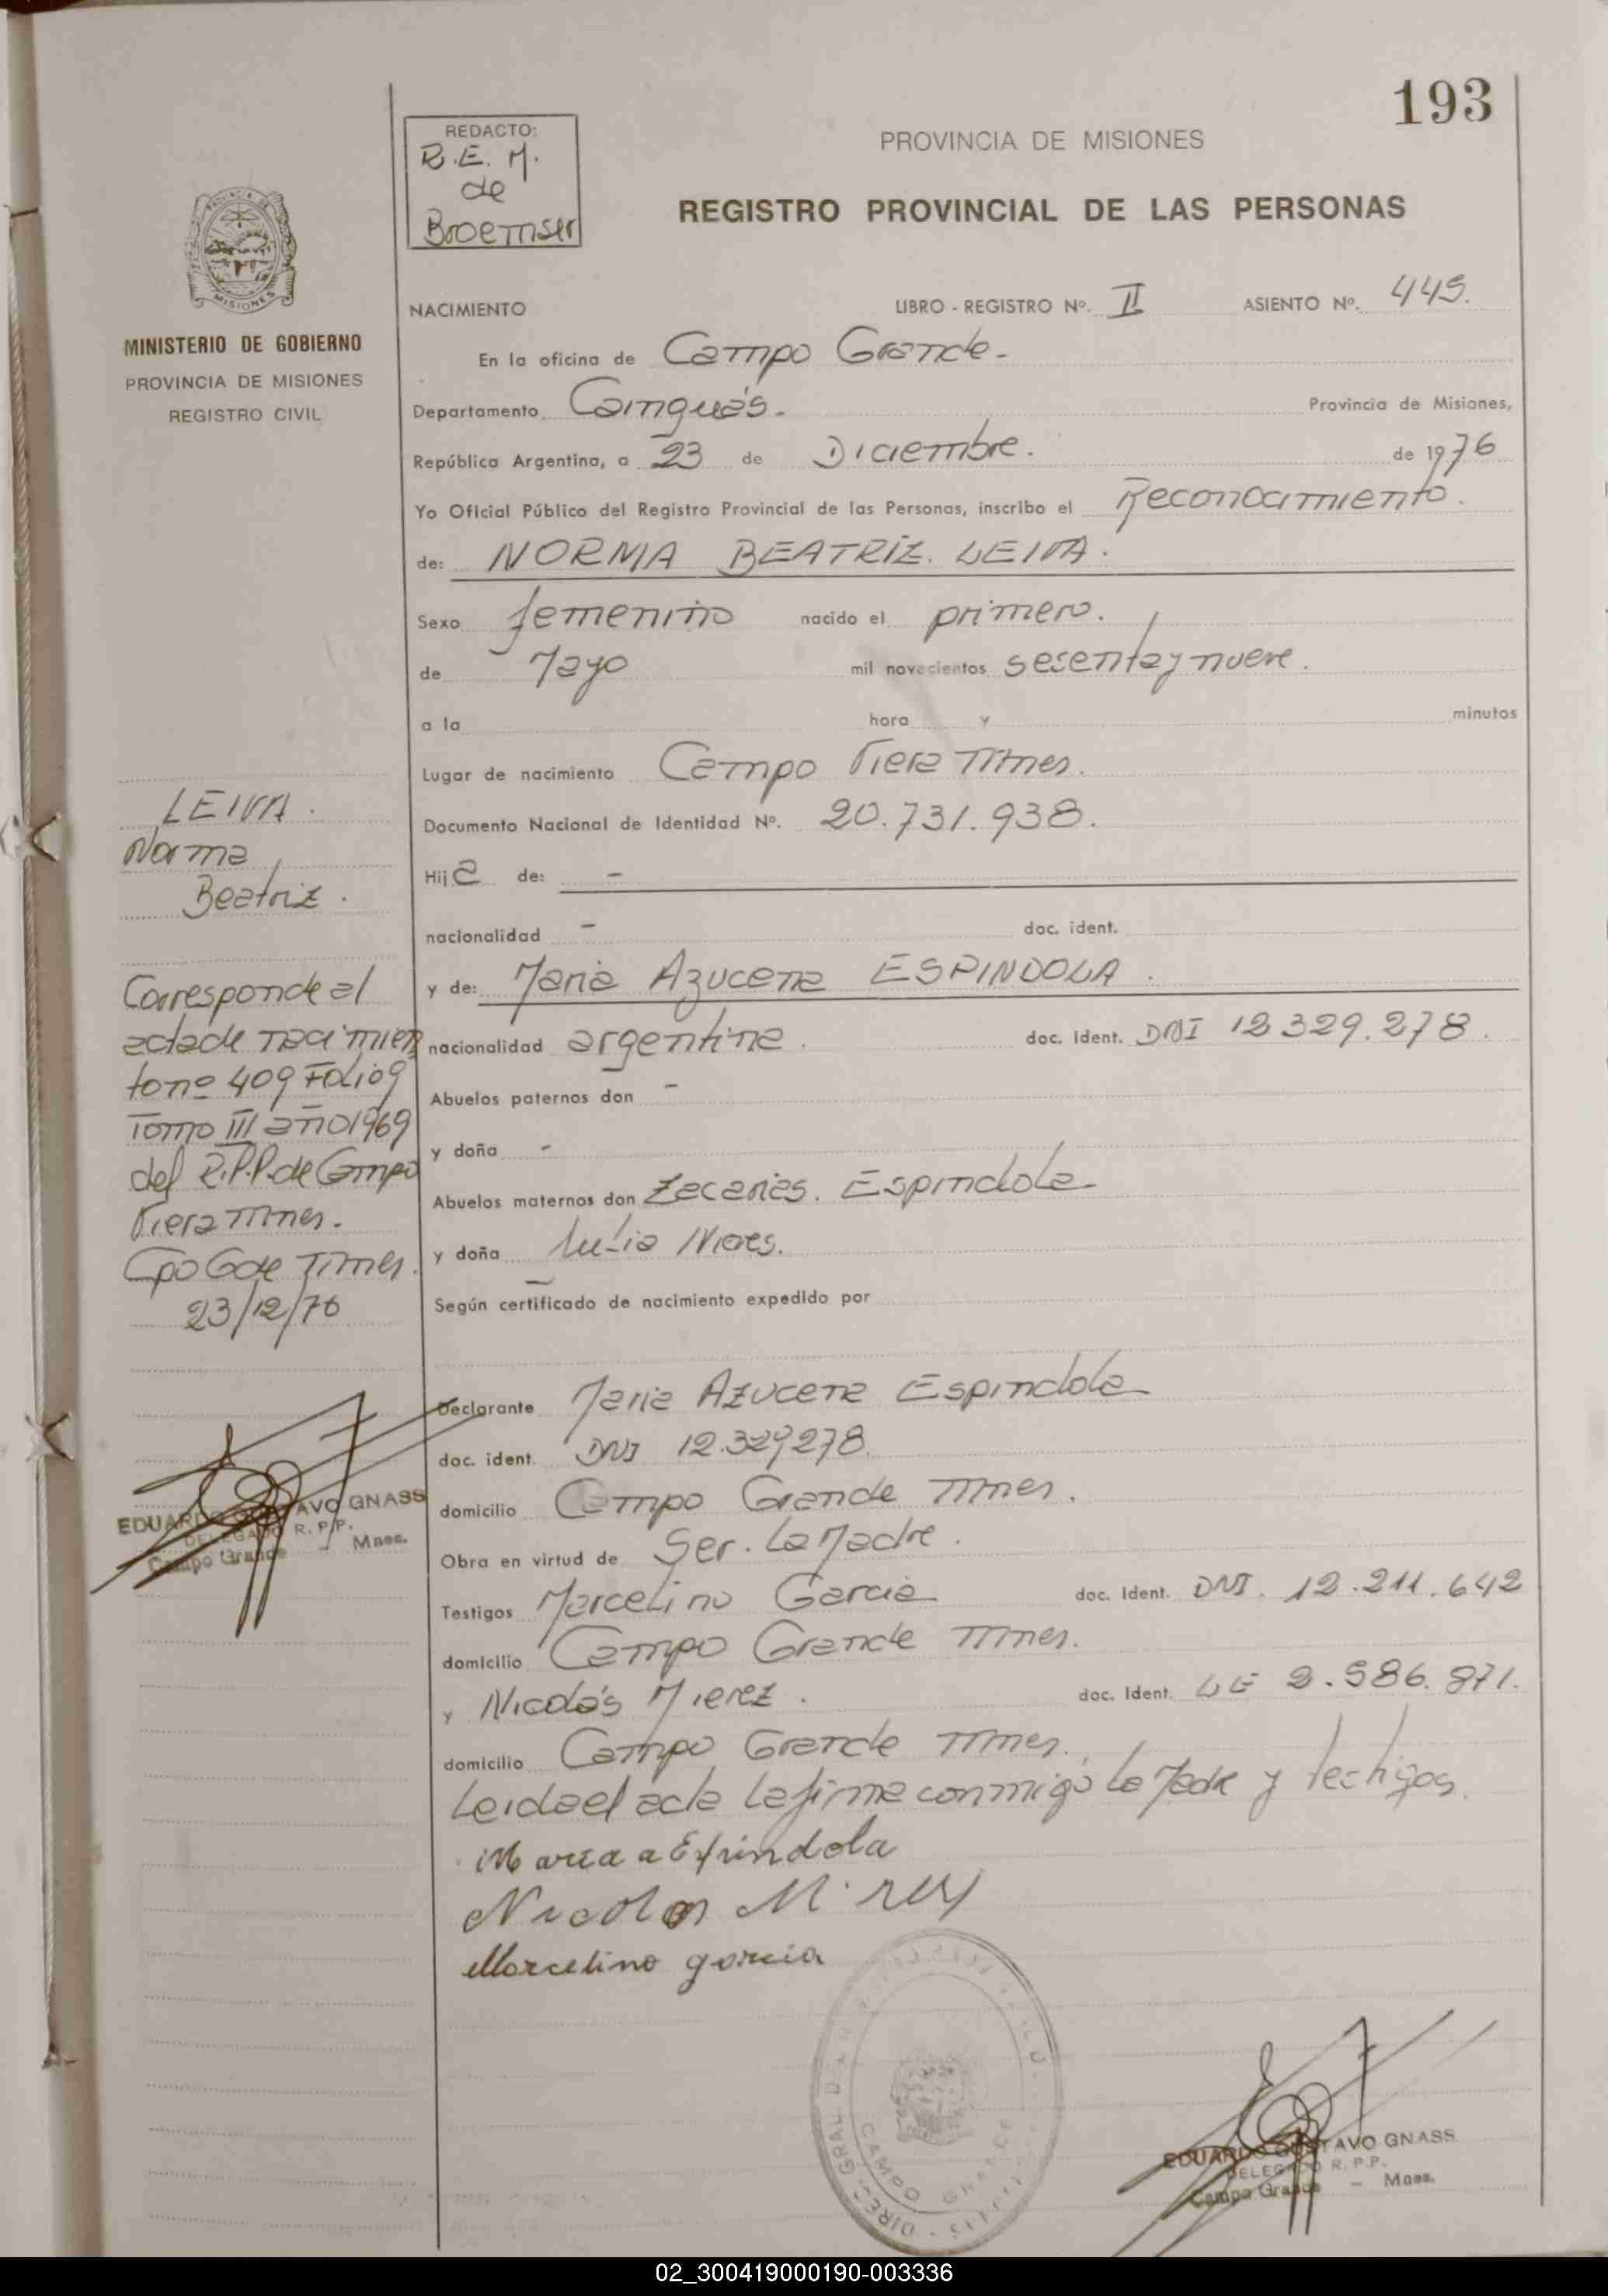 193
REDACTO:
R.E.M.
de
Broemser
PROVINCIA DE MISIONES
REGISTRO PROVINCIAL DE LAS PERSONAS
PROVINCIA DE
MISIONES
MINISTERIO DE GOBIERNO
PROVINCIA DE MISIONES
REGISTRO CIVIL
NACIMIENTO LIBRO - REGISTRO Nº. II ASIENTO Nº. 445.
En la oficina de Campo Grande-
Departamento Cainguás. Provincia de Misiones,
República Argentina, a 23 de Diciembre. de 1976
Yo Oficial Público del Registro Provincial de las Personas, inscribo el Reconocimiento.
de: NORMA BEATRIZ. LEIVA.
Sexo femenino nacido el primero.
de Mayo mil novecientos sesenta y nueve.
a la hora y minutos
Lugar de nacimiento Campo Viera Mnes.
Documento Nacional de Identidad Nº. 20.731.938.
Hija de: -
nacionalidad - doc. ident.
y de: Maria Azucena ESPINDOLA.
nacionalidad argentina. doc. Ident. DNI 12329.278.
Abuelos paternos don -
y doña -
Abuelos maternos don Zacarias. Espindola-
y doña Julia Nieves.
Según certificado de nacimiento expedido por -
Declarante Maria Azucena Espindola
doc. ident. DNI 12.329278.
domicilio Campo Grande Mnes.
Obra en virtud de Ser. La Madre.
Testigos Marcelino Garcia doc. Ident. DNI. 12.211.642
domicilio Campo Grande Mnes.
y Nicolás Mierez. doc. Ident. LE 2.586.871.
domicilio Campo Grande Mnes.
Leida el acta la firma conmigo la Madre y techigos.
Maria a Espindola
Nicolas
Marcelino garcia
LEIVA.
Norma
Beatriz.
Corresponde al
acta de nacimien
to nº 409 Folio 9
Tomo III año 1969
del R.P.P. de Campo
Viera Mnes.
Cpo Gde Mnes.
23/12/76
EDUARDO GUSTAVO GNASS
DELEGADO R. P.P.
Campo Grande - Mnes.
CAMPO GRANDE
EDUARDO GUSTAVO GNASS
DELEGADO R. P.P.
Campo Grande - Mnes.
02_300419000190-003336